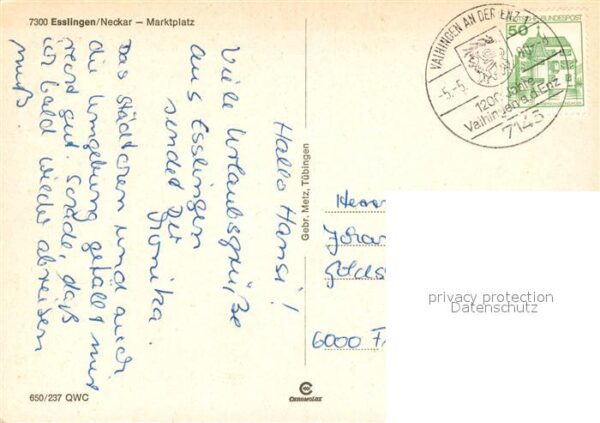 7300 Esslingen/Neckar — Marktplatz
Hallo Hansi!
Viele Urlaubsgrüße
aus Esslingen
sendet Dir
Monika.
Das Städtchen und auch
die Umgebung gefällt mir
recht gut. Schade, daß
ich bald wieder abreisen
muß.
Gebr. Metz, Tübingen
VAIHINGEN AN DER ENZ 1
-5.-5. 80-
1200 Jahre
Vaihingen a.d. Enz
7143
50
DEUTSCHE BUNDESPOST
Herrn
6000 F
privacy protection
Datenschutz
650/237 QWC
CHROMOLUX